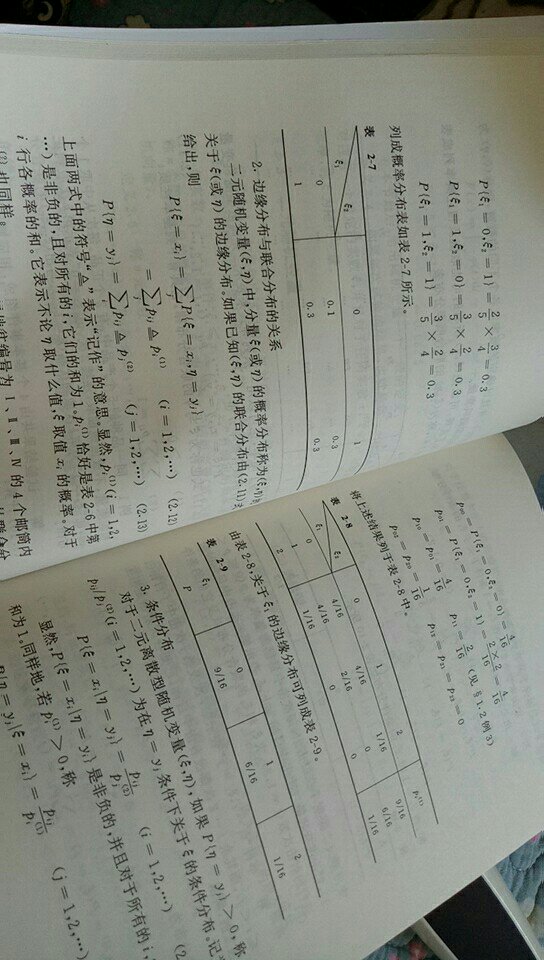 P{ξ₁ = 0, ξ₂ = 1} = 2/5 × 3/4 = 0.3
P{ξ₁ = 1, ξ₂ = 0} = 3/5 × 2/4 = 0.3
P{ξ₁ = 1, ξ₂ = 1} = 3/5 × 2/4 = 0.3
列成概率分布表如表 2-7 所示。
表 2-7
ξ₁ ξ₂ 0 1
0 0.1 0.3
1 0.3 0.3
2. 边缘分布与联合分布的关系
二元随机变量(ξ,η)中,分量ξ(或η)的概率分布称为(ξ,η)
关于ξ(或η)的边缘分布。如果已知(ξ,η)的联合分布由(2.11)
给出,则
P{ξ = xᵢ} = ∑ P{ξ = xᵢ, η = yⱼ}
= ∑ pᵢⱼ ≜ pᵢ⁽¹⁾ (i = 1,2,…) (2.12)
P{η = yⱼ} = ∑ pᵢⱼ ≜ pⱼ⁽²⁾ (j = 1,2,…) (2.13)
上面两式中的符号“≜”表示“记作”的意思。显然,pᵢ⁽¹⁾(i = 1,2,
…)是非负的,且对所有的 i,它们的和为 1。pᵢ⁽¹⁾ 恰好是表 2-6 中第
i 行各概率的和。它表示不论 η 取什么值,ξ 取值 xᵢ 的概率。对于
也同样。
编号为 Ⅰ、Ⅱ、Ⅲ、Ⅳ 的 4 个邮筒内
p₀₀ = P{ξ₁ = 0, ξ₂ = 0} = 4/16
p₀₁ = P{ξ₁ = 0, ξ₂ = 1} = 2×2/16 = 4/16 (见 §1.2 例 3)
p₁₀ = p₀₁ = 4/16 p₁₁ = 2/16
p₀₂ = p₂₀ = 1/16 p₁₂ = p₂₁ = p₂₂ = 0
将上述结果列于表 2-8 中。
表 2-8
ξ₁ ξ₂ 0 1 2 pᵢ⁽¹⁾
0 4/16 4/16 1/16 9/16
1 4/16 2/16 0 6/16
2 1/16 0 0 1/16
由表 2-8,关于 ξ₁ 的边缘分布可列成表 2-9。
表 2-9
ξ₁ 0 1 2
P 9/16 6/16 1/16
3. 条件分布
对于二元离散型随机变量(ξ,η),如果 P{η = yⱼ} > 0,称
pᵢⱼ/pⱼ⁽²⁾(i = 1,2,…) 为在 η = yⱼ 条件下关于 ξ 的条件分布。记
P{ξ = xᵢ|η = yⱼ} = pᵢⱼ/pⱼ⁽²⁾ (i = 1,2,…) (2.
显然,P{ξ = xᵢ|η = yⱼ} 是非负的,并且对于所有的 i,
和为 1。同样地,若 pᵢ⁽¹⁾ > 0,称
P{η = yⱼ|ξ = xᵢ} = pᵢⱼ/pᵢ⁽¹⁾ (j = 1,2,…)